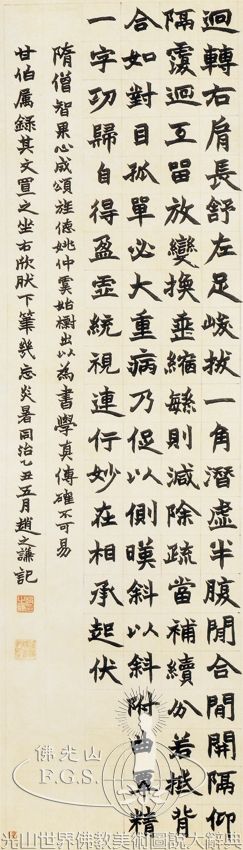 迴轉右肩長舒左足峻拔一角潛虛半腹閒合閒開隔仰
隔覆迴互留放變換垂縮緐則減除疏當補續分若抵背
合如對目孤單必大重病乃促以側暎斜以斜附曲覃精
一字功歸自得盈虛統視連行妙在相承起伏
隋僧智果心成頌旌德姚仲虞始出以為書學真傳確不可易
甘伯屬錄其文置之坐右欣肰下筆幾忘炎暑同治乙丑五月趙之謙記
佛光山
F.G.S.
光山世界佛教美術圖說大辭典